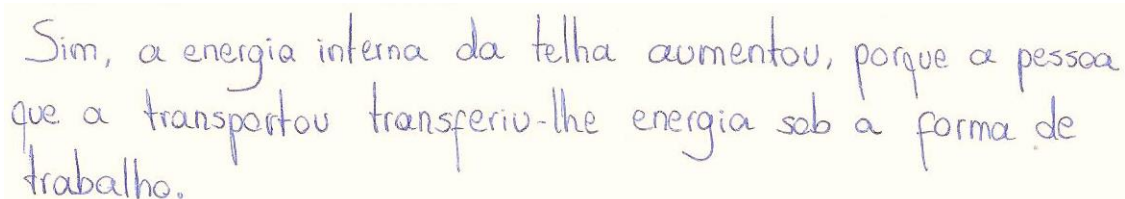 Sim, a energia interna da telha aumentou, porque a pessoa
que a transportou transferiu-lhe energia sob a forma de
trabalho.